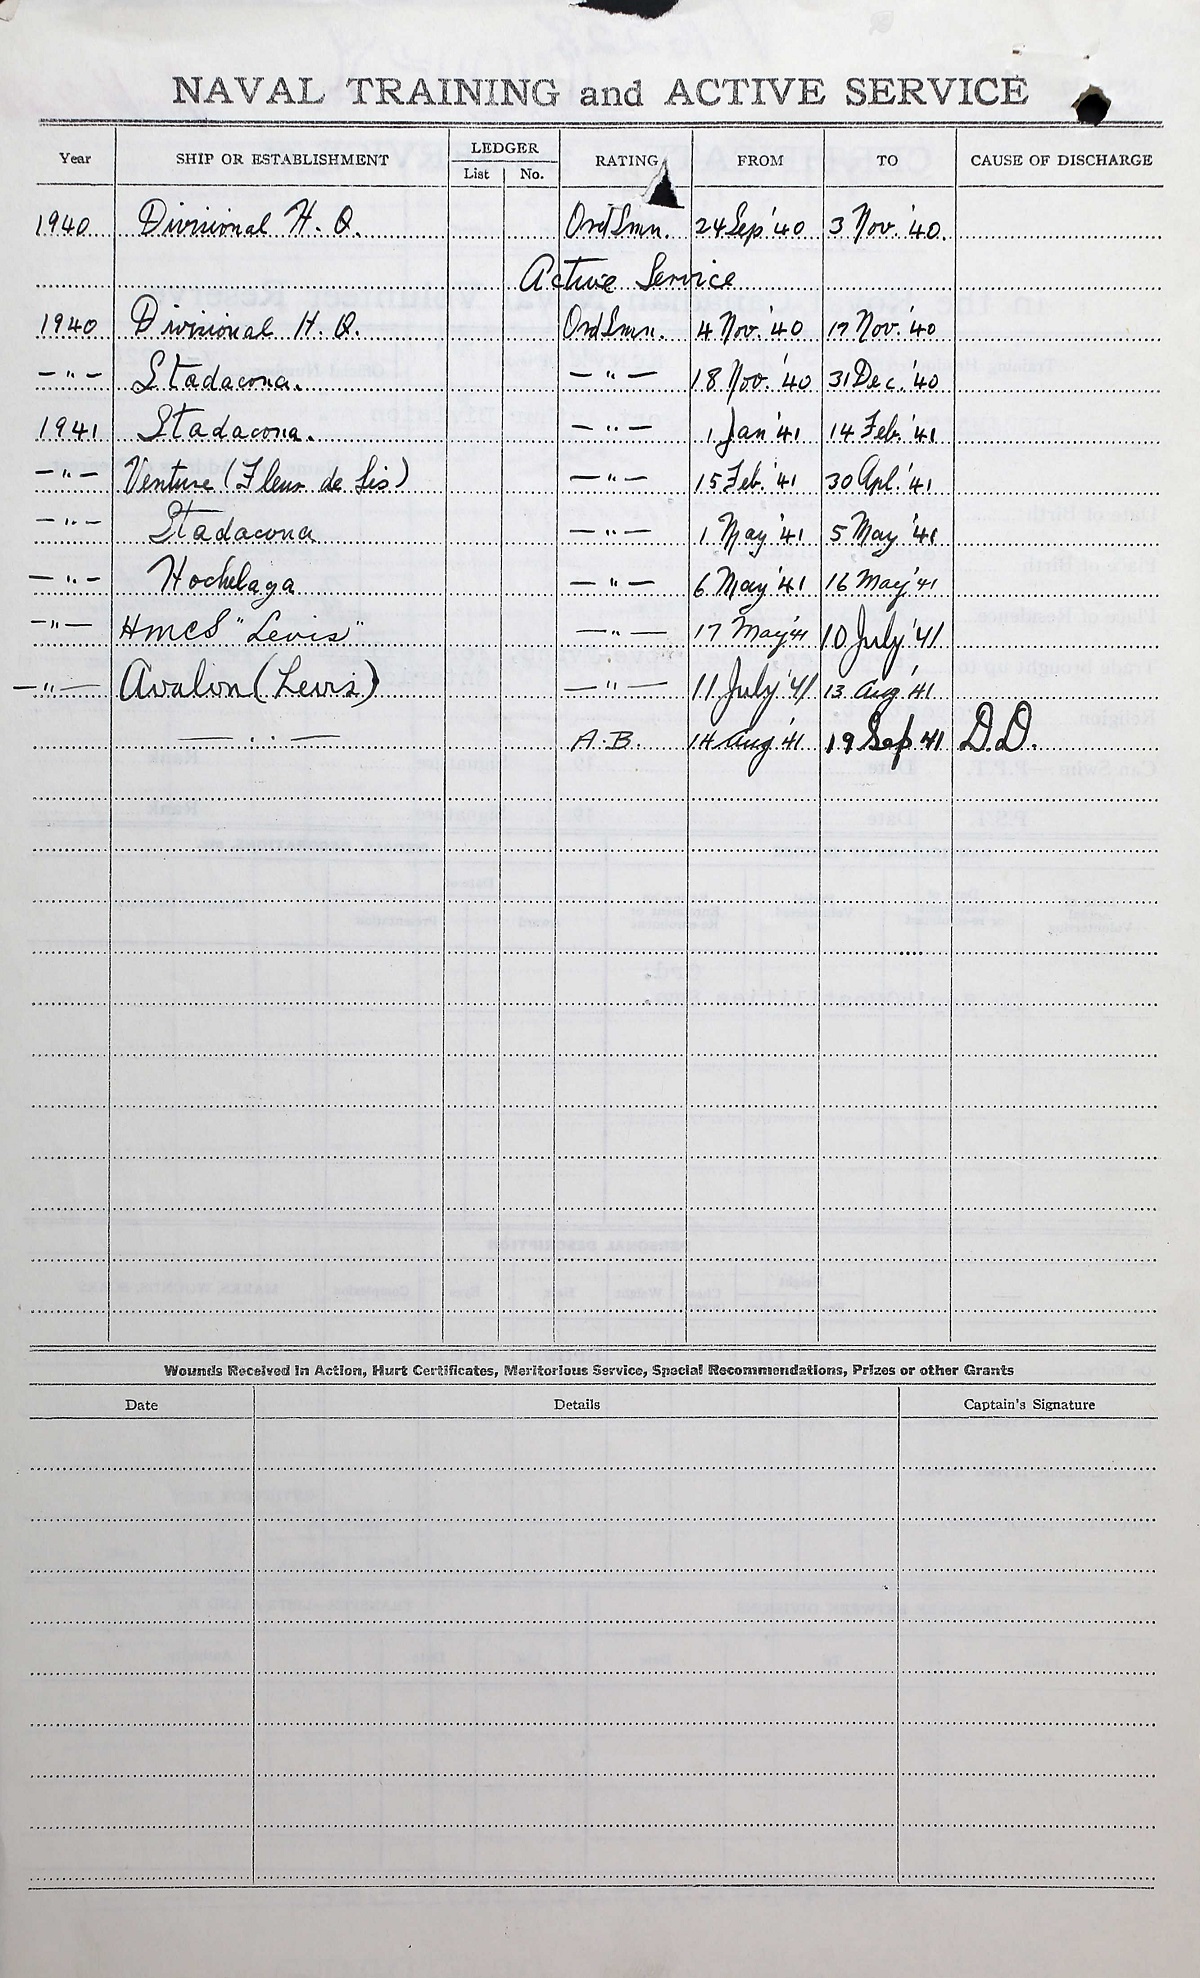 NAVAL TRAINING and ACTIVE SERVICE
Year SHIP OR ESTABLISHMENT LEDGER List No. RATING FROM TO CAUSE OF DISCHARGE
1940 Divisional H. Q. OrdSmn. 24 Sep '40 3 Nov. '40.
Active Service
1940 Divisional H. Q. OrdSmn. 4 Nov. '40 17 Nov. '40
— " — Stadacona. — " — 18 Nov. '40 31 Dec. '40
1941 Stadacona. — " — 1 Jan '41 14 Feb. '41
— " — Venture (Fleur de Lis) — " — 15 Feb. '41 30 Apl. '41
— " — Stadacona — " — 1 May '41 5 May '41
— " — Hochelaga — " — 6 May '41 16 May '41
— " — HMCS "Levis" — " — 17 May '41 10 July '41
— " — Avalon (Levis) — " — 11 July '41 13 Aug '41
— " — A.B. 14 Aug '41 19 Sep 41 D.D.
Wounds Received in Action, Hurt Certificates, Meritorious Service, Special Recommendations, Prizes or other Grants
Date Details Captain's Signature